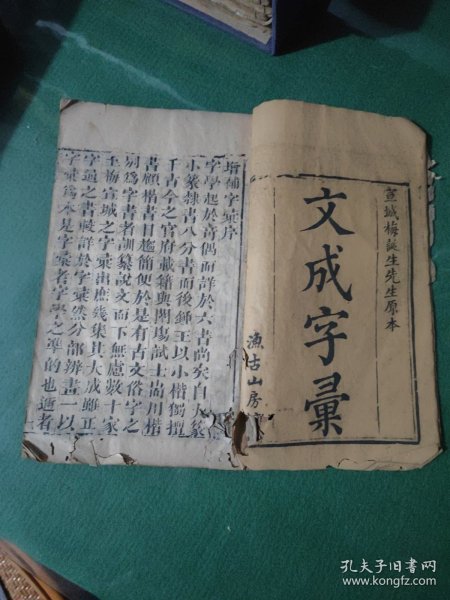 宣城梅誕生先生原本
文成字彙
漁古山房
增補字彙序
字學起於奇偶而詳於六書尚矣自大篆
小篆隸書八分書而後鍾王以小楷獨擅
千古今之官府載籍與闈場試士尚用楷
書顧楷書日趨簡便於是有古文俗字之
別為字書者訓纂說文而下無慮數十家
至梅宣城之字彙出庶幾集其大成雖正
字通之書較詳於字彙然分部辨畫一以
字彙為本是字彙者字學之準的也邇者
孔夫子旧书网
www.kongfz.com